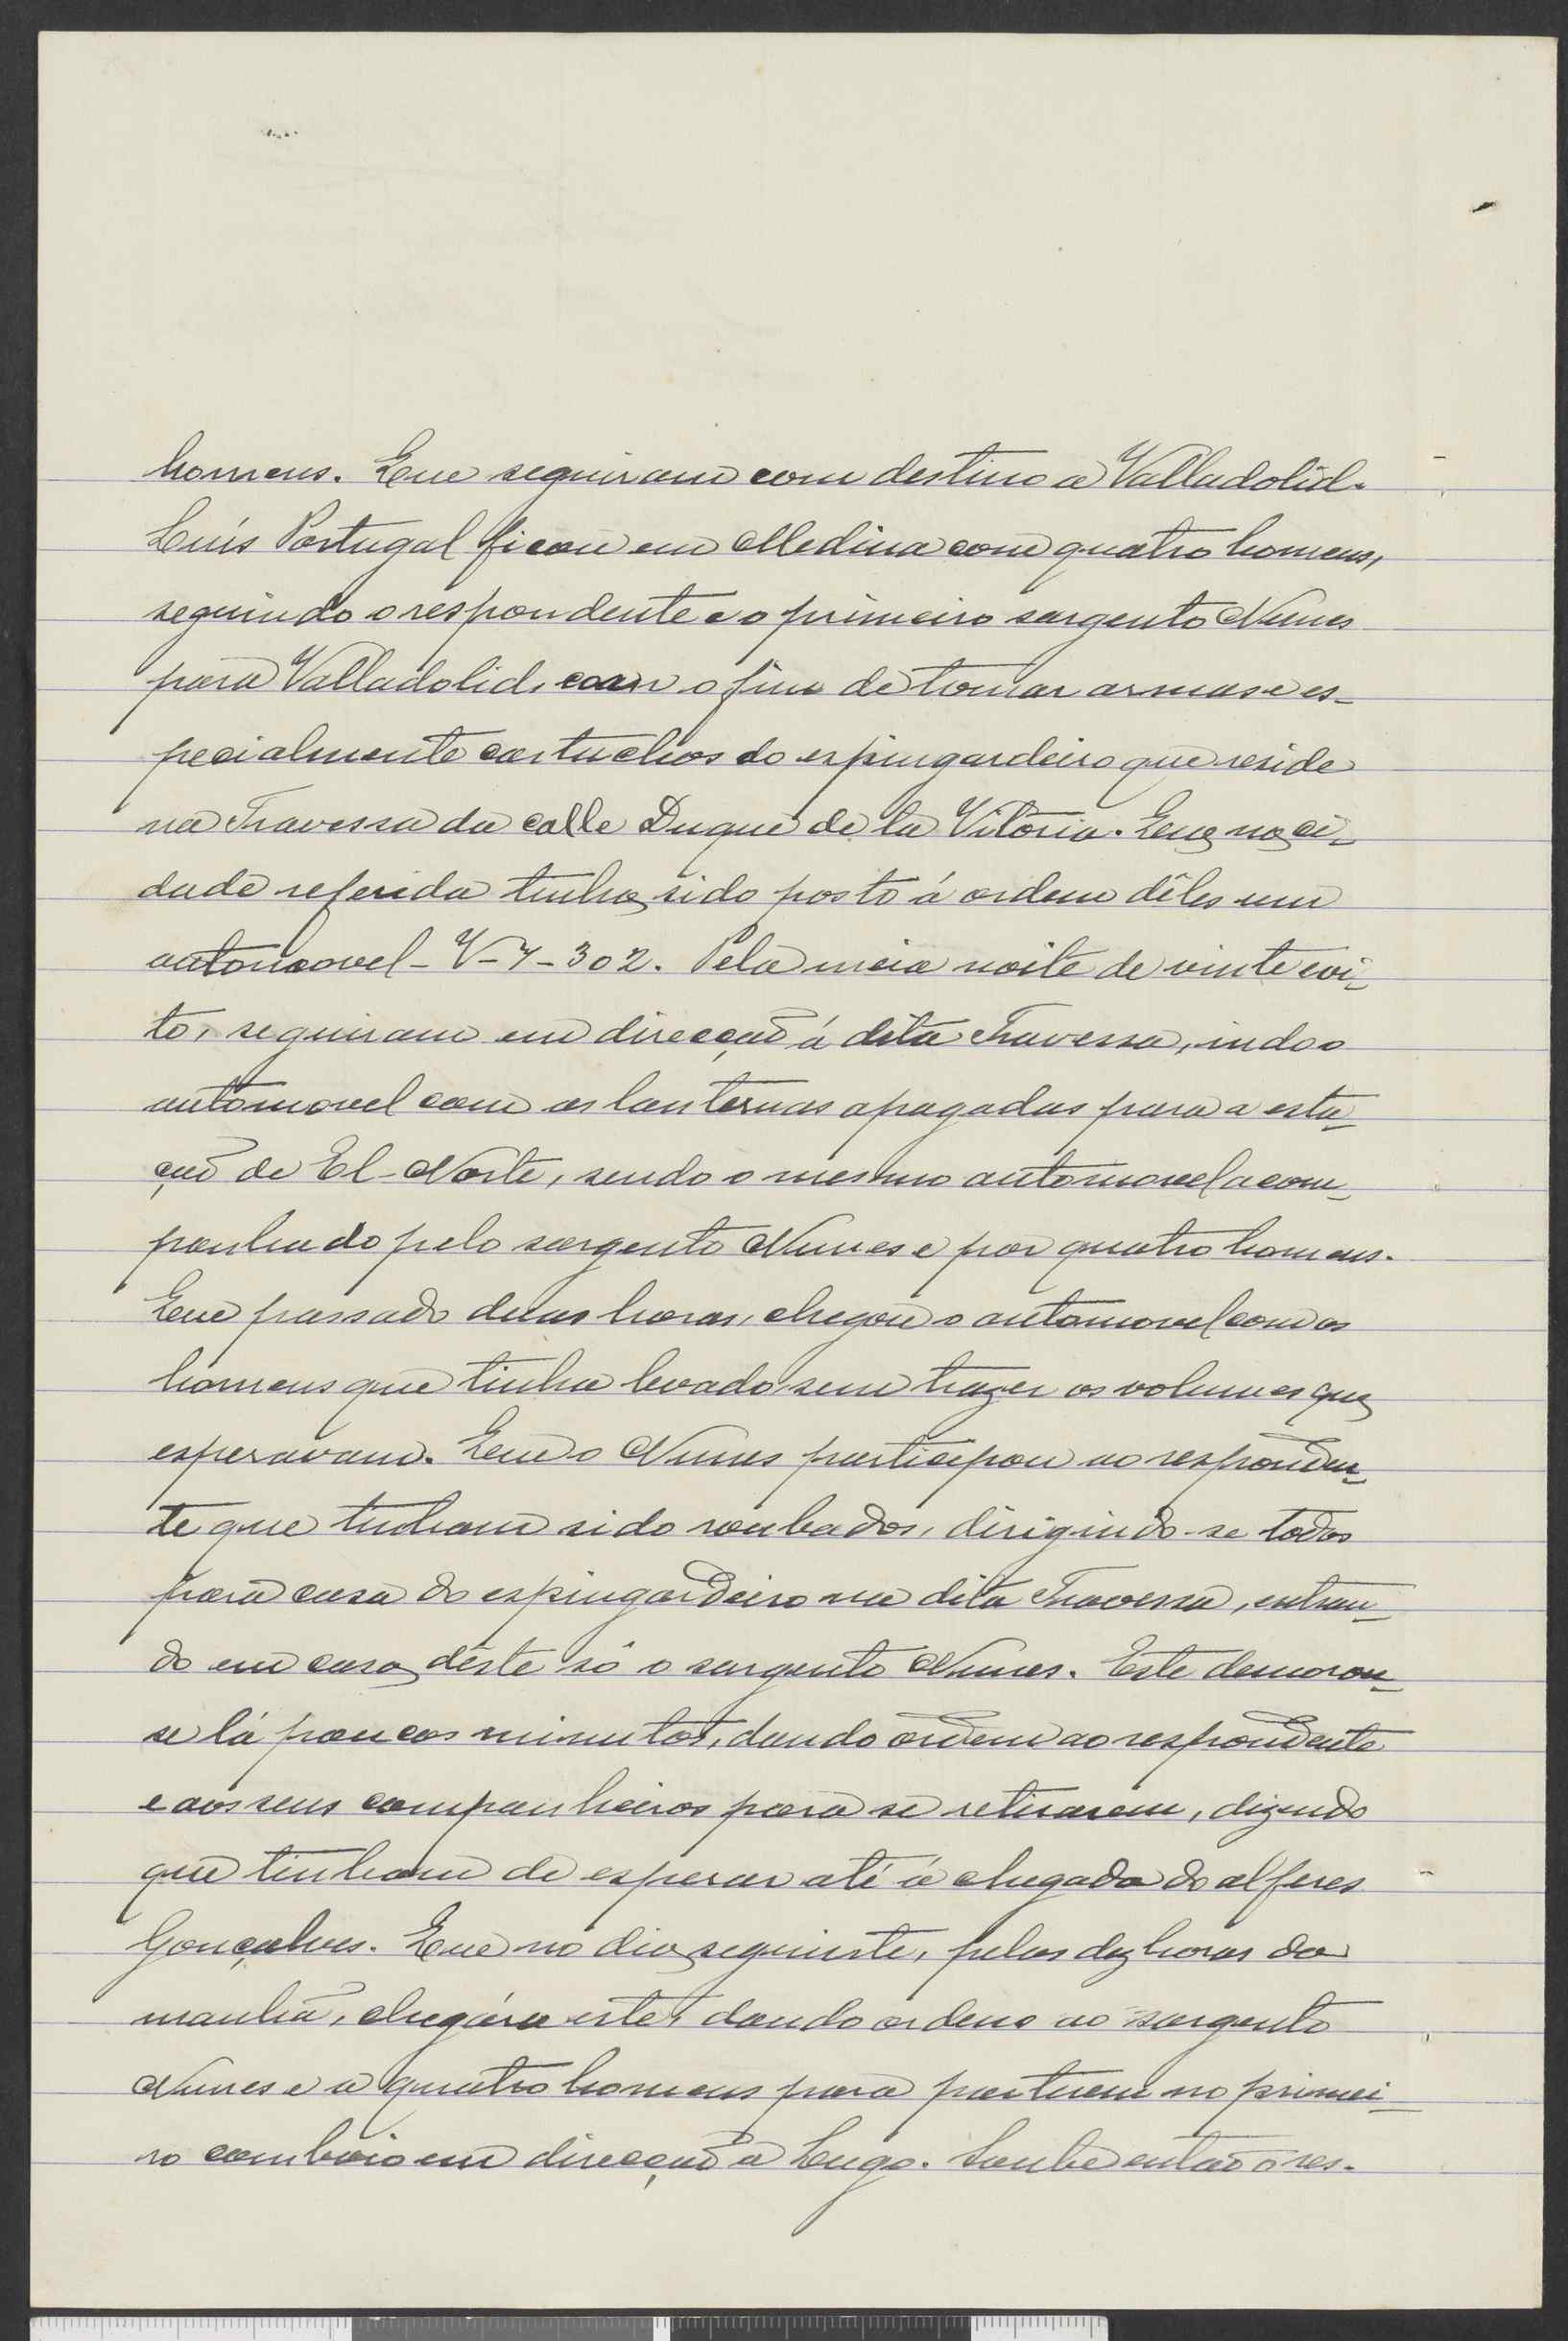 homens. Que seguiram com destino a Valladolid.
Luís Portugal ficou em Medina com quatro homens,
seguindo o respondente e o primeiro sargento Nunes
para Valladolid, com o fim de tomar armas e es-
pecialmente cartuchos do espingardeiro que reside
na Travessa da calle Duque de la Vitória. Que na ci-
dade referida tinha sido posto á ordem dêles um
automovel - V-7-302. Pela meia noite de vinte e oi-
to, seguiram em direcção á dita Travessa, indo o
automovel com as lanternas apagadas para a esta-
ção de El-Norte, sendo o mesmo automovel acom-
panhado pelo sargento Nunes e por quatro homens.
Que passado duas horas, chegou o automovel com os
homens que tinha levado, sem trazer os volumes que
esperavam. Que o Nunes participou ao responden-
te que tinham sido roubados, dirigindo-se todos
para casa do espingardeiro na dita Travessa, entran-
do em casa dêste só o sargento Nunes. Este demorou-
se lá poucos minutos, dando ordem ao respondente
e aos seus companheiros para se retirarem, dizendo
que tinham de esperar até á chegada do alferes
Gonçalves. Que no dia seguinte, pelas dez horas da
manhã, chegára este, dando ordens ao sargento
Nunes e a quatro homens para partirem no primei-
ro comboio em direcção a Lugo. Soube então o res-